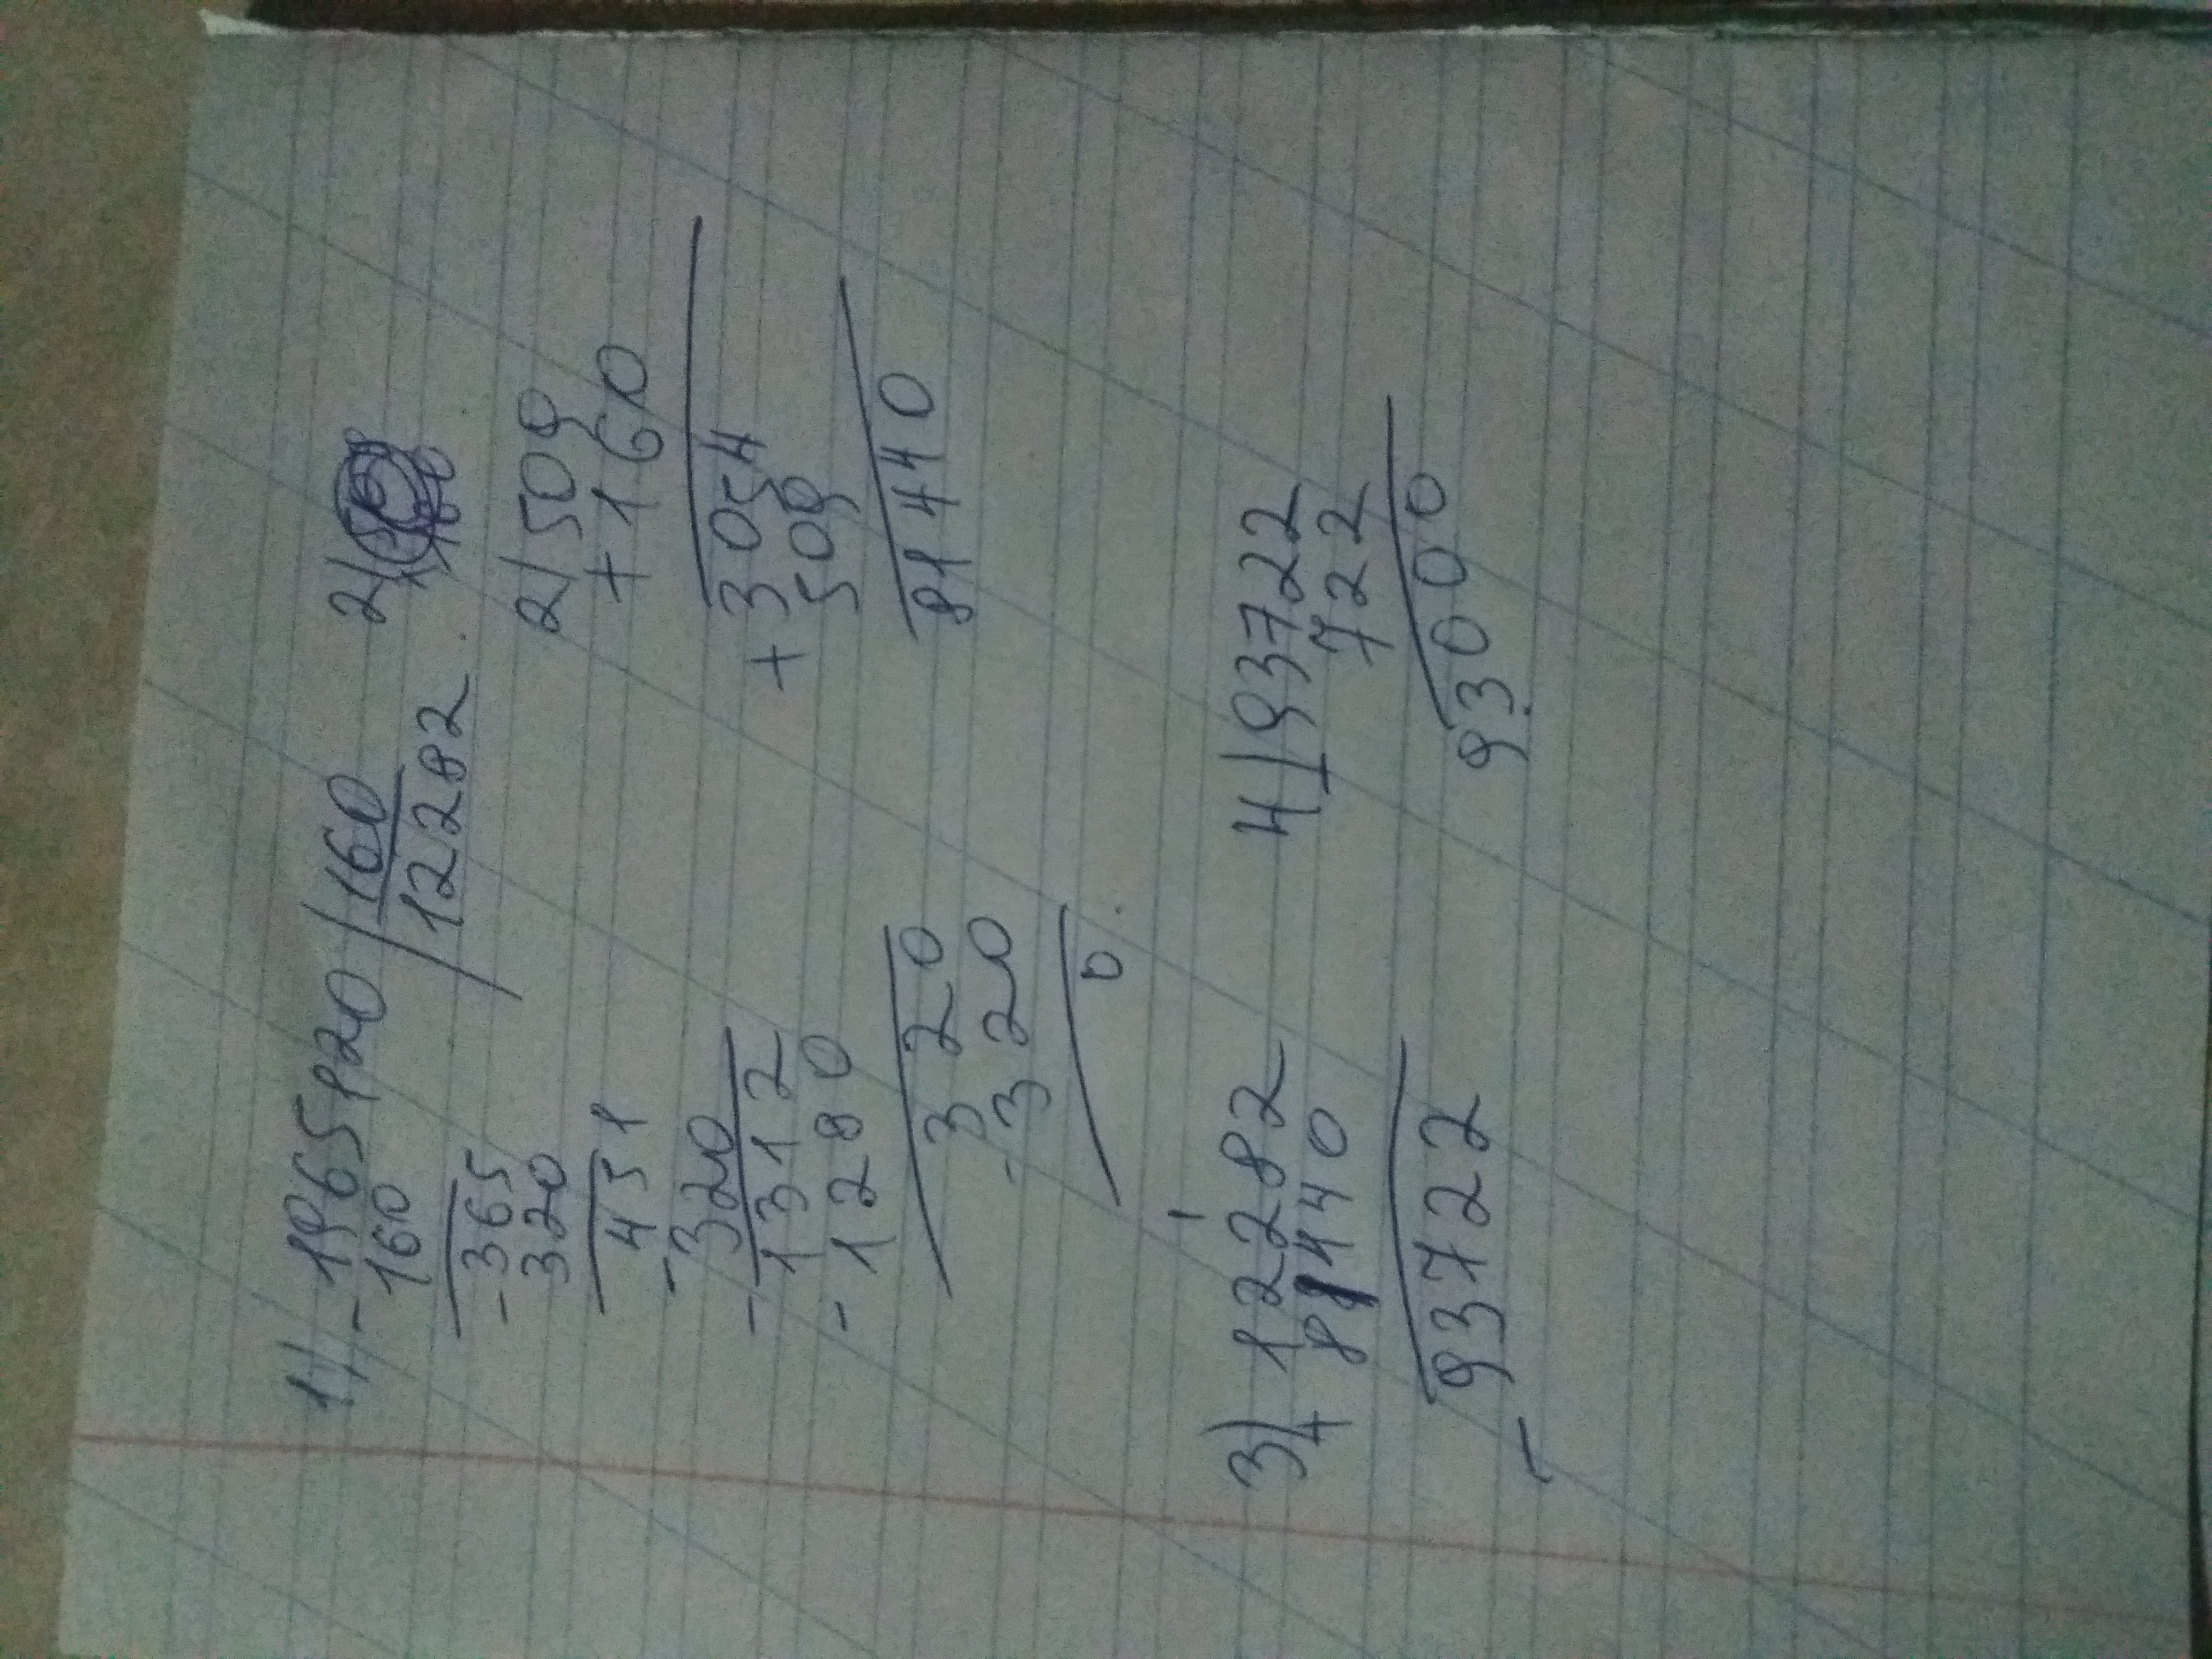 1) - 1965120 | 160
160 | 12282
- 365
320
451
- 320
- 1312
- 1280
320
- 320
0
2)
2) 509
+ 160
+ 3054
509
81440
3) 12282
+ 81440
93722
4) 93722
- 722
93000